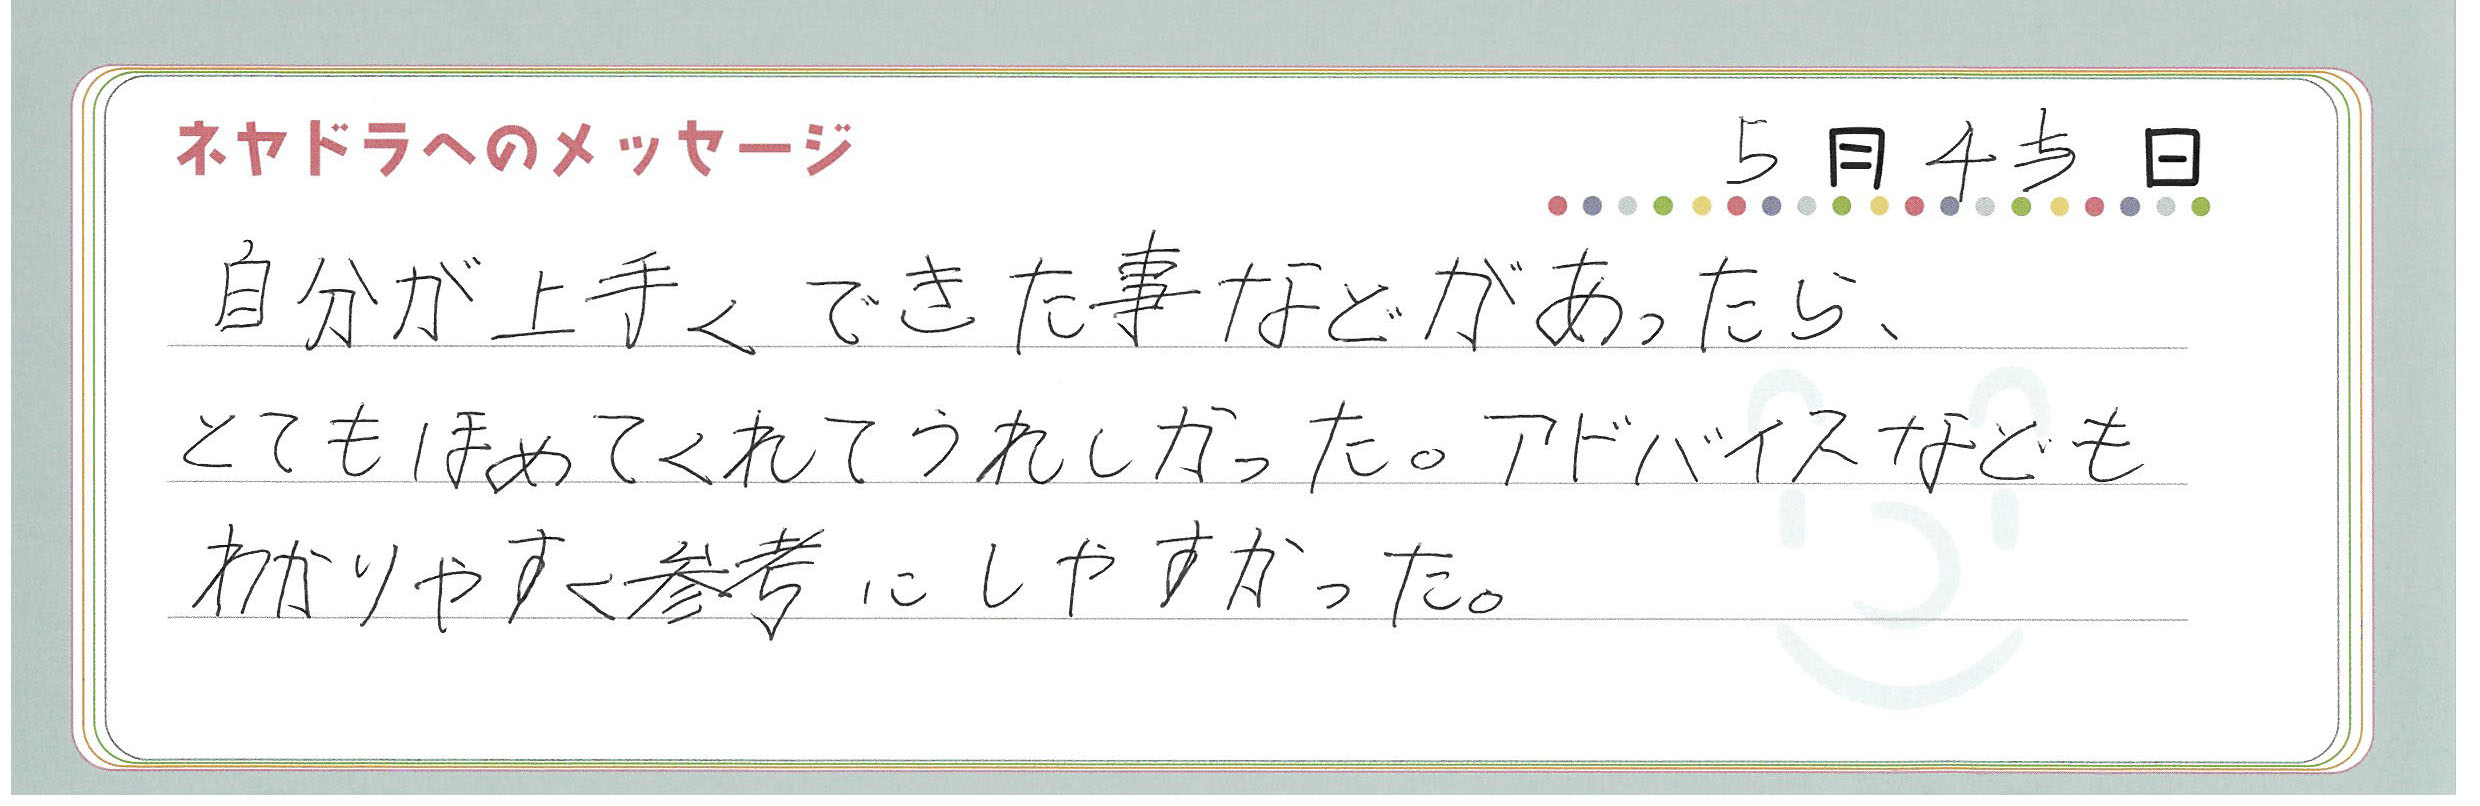 ネヤドラへのメッセージ
5月4日
自分が上手くできた事などがあったら、
とてもほめてくれてうれしかった。アドバイスなども
わかりやすく参考にしやすかった。